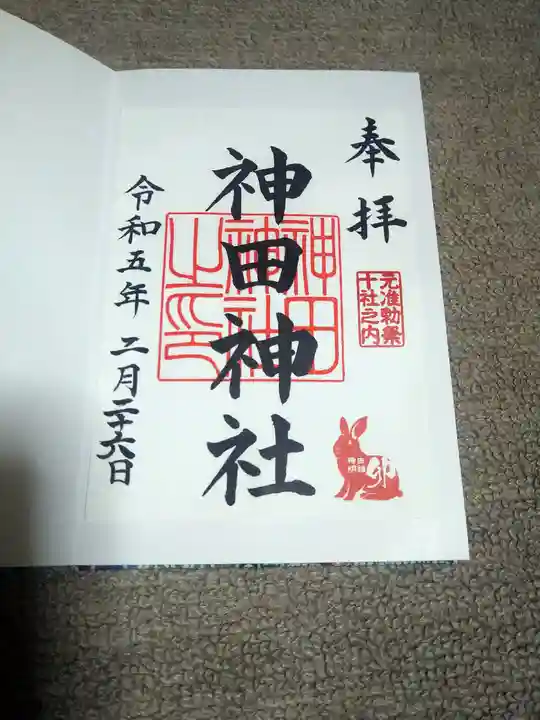 奉拝
元准勅祭
十社之内
卯
神田神社
神田
神社
之印
令和五年 二月二十六日